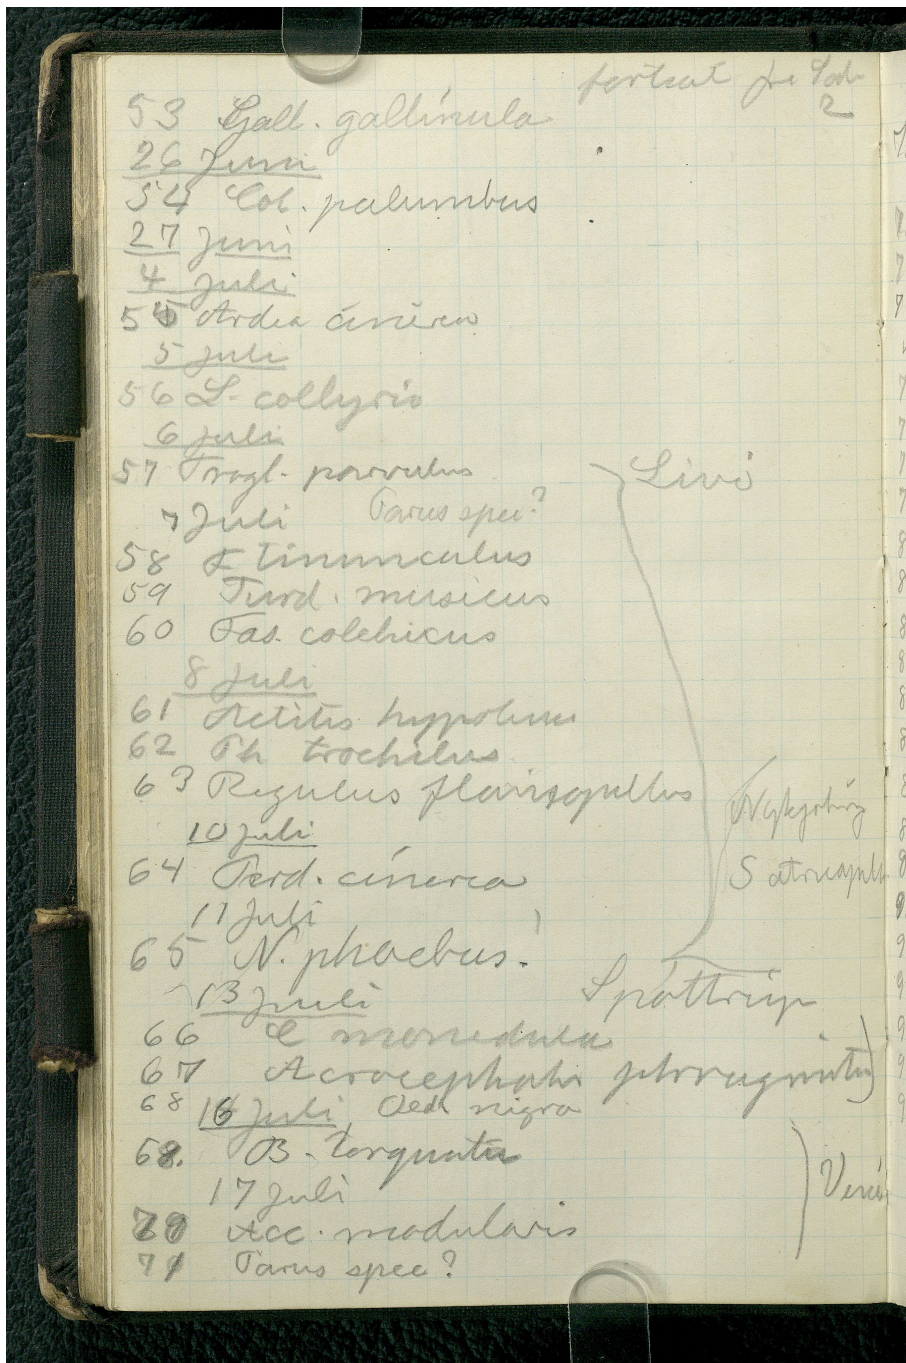 fortsat fra Sid
2
53 Gall. gallinula
26 Juni
54 Col. palumbus
27 Juni
4 Juli
55 Ardea cinerea
5 Juli
56 L. collyrio
6 Juli
57 Trogl. parvulus
Livö
7 Juli Parus spec?
58 F tinnunculus
59 Turd. musicus
60 Fas. colchicus
8 Juli
61 Actitis hypoleuc
62 Ph trochilus
63 Regulus
Nykjøbing
10 Juli
64 Perd. cinerea
S atricapill
11 Juli
65 N. phaebus!
13 Juli
Spøttrup
66 C monedula
67 Acrocephalus phragmitis
68 16 Juli Oed nigra
69. B. torquata
17 Juli
70 Acc. modularis
71 Parus spec?